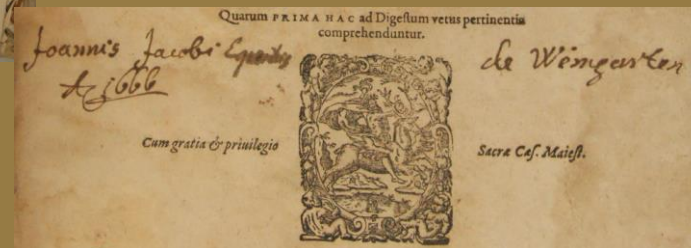 Quarum PRIMA HAC ad Digestum vetus pertinentia
comprehenduntur.
Joannis Jacobi Equitis de Weingarten
A. 1666
Cum gratia & priuilegio Sacræ Cæs. Maiest.